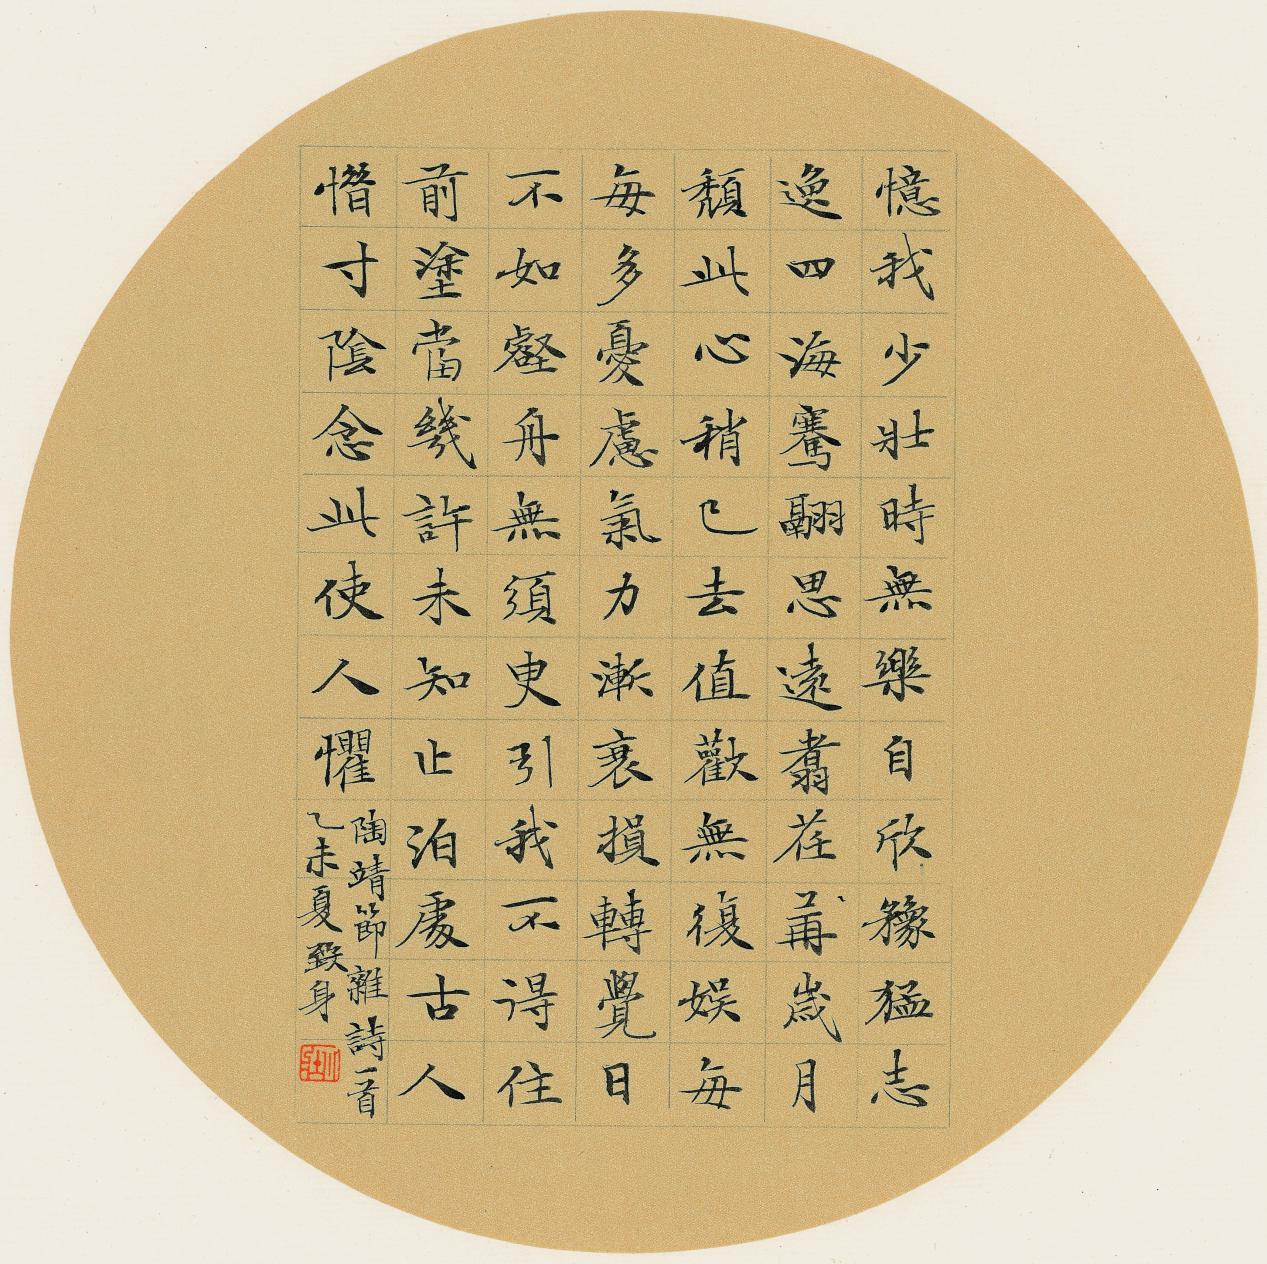 憶我少壯時無樂自欣豫猛志
逸四海騫翮思遠翥荏苒歲月
頹此心稍已去值歡無復娛每
每多憂慮氣力漸衰損轉覺日
不如壑舟無須臾引我不得住
前塗當幾許未知止泊處古人
惜寸陰念此使人懼
陶靖節雜詩一首
乙未夏致身